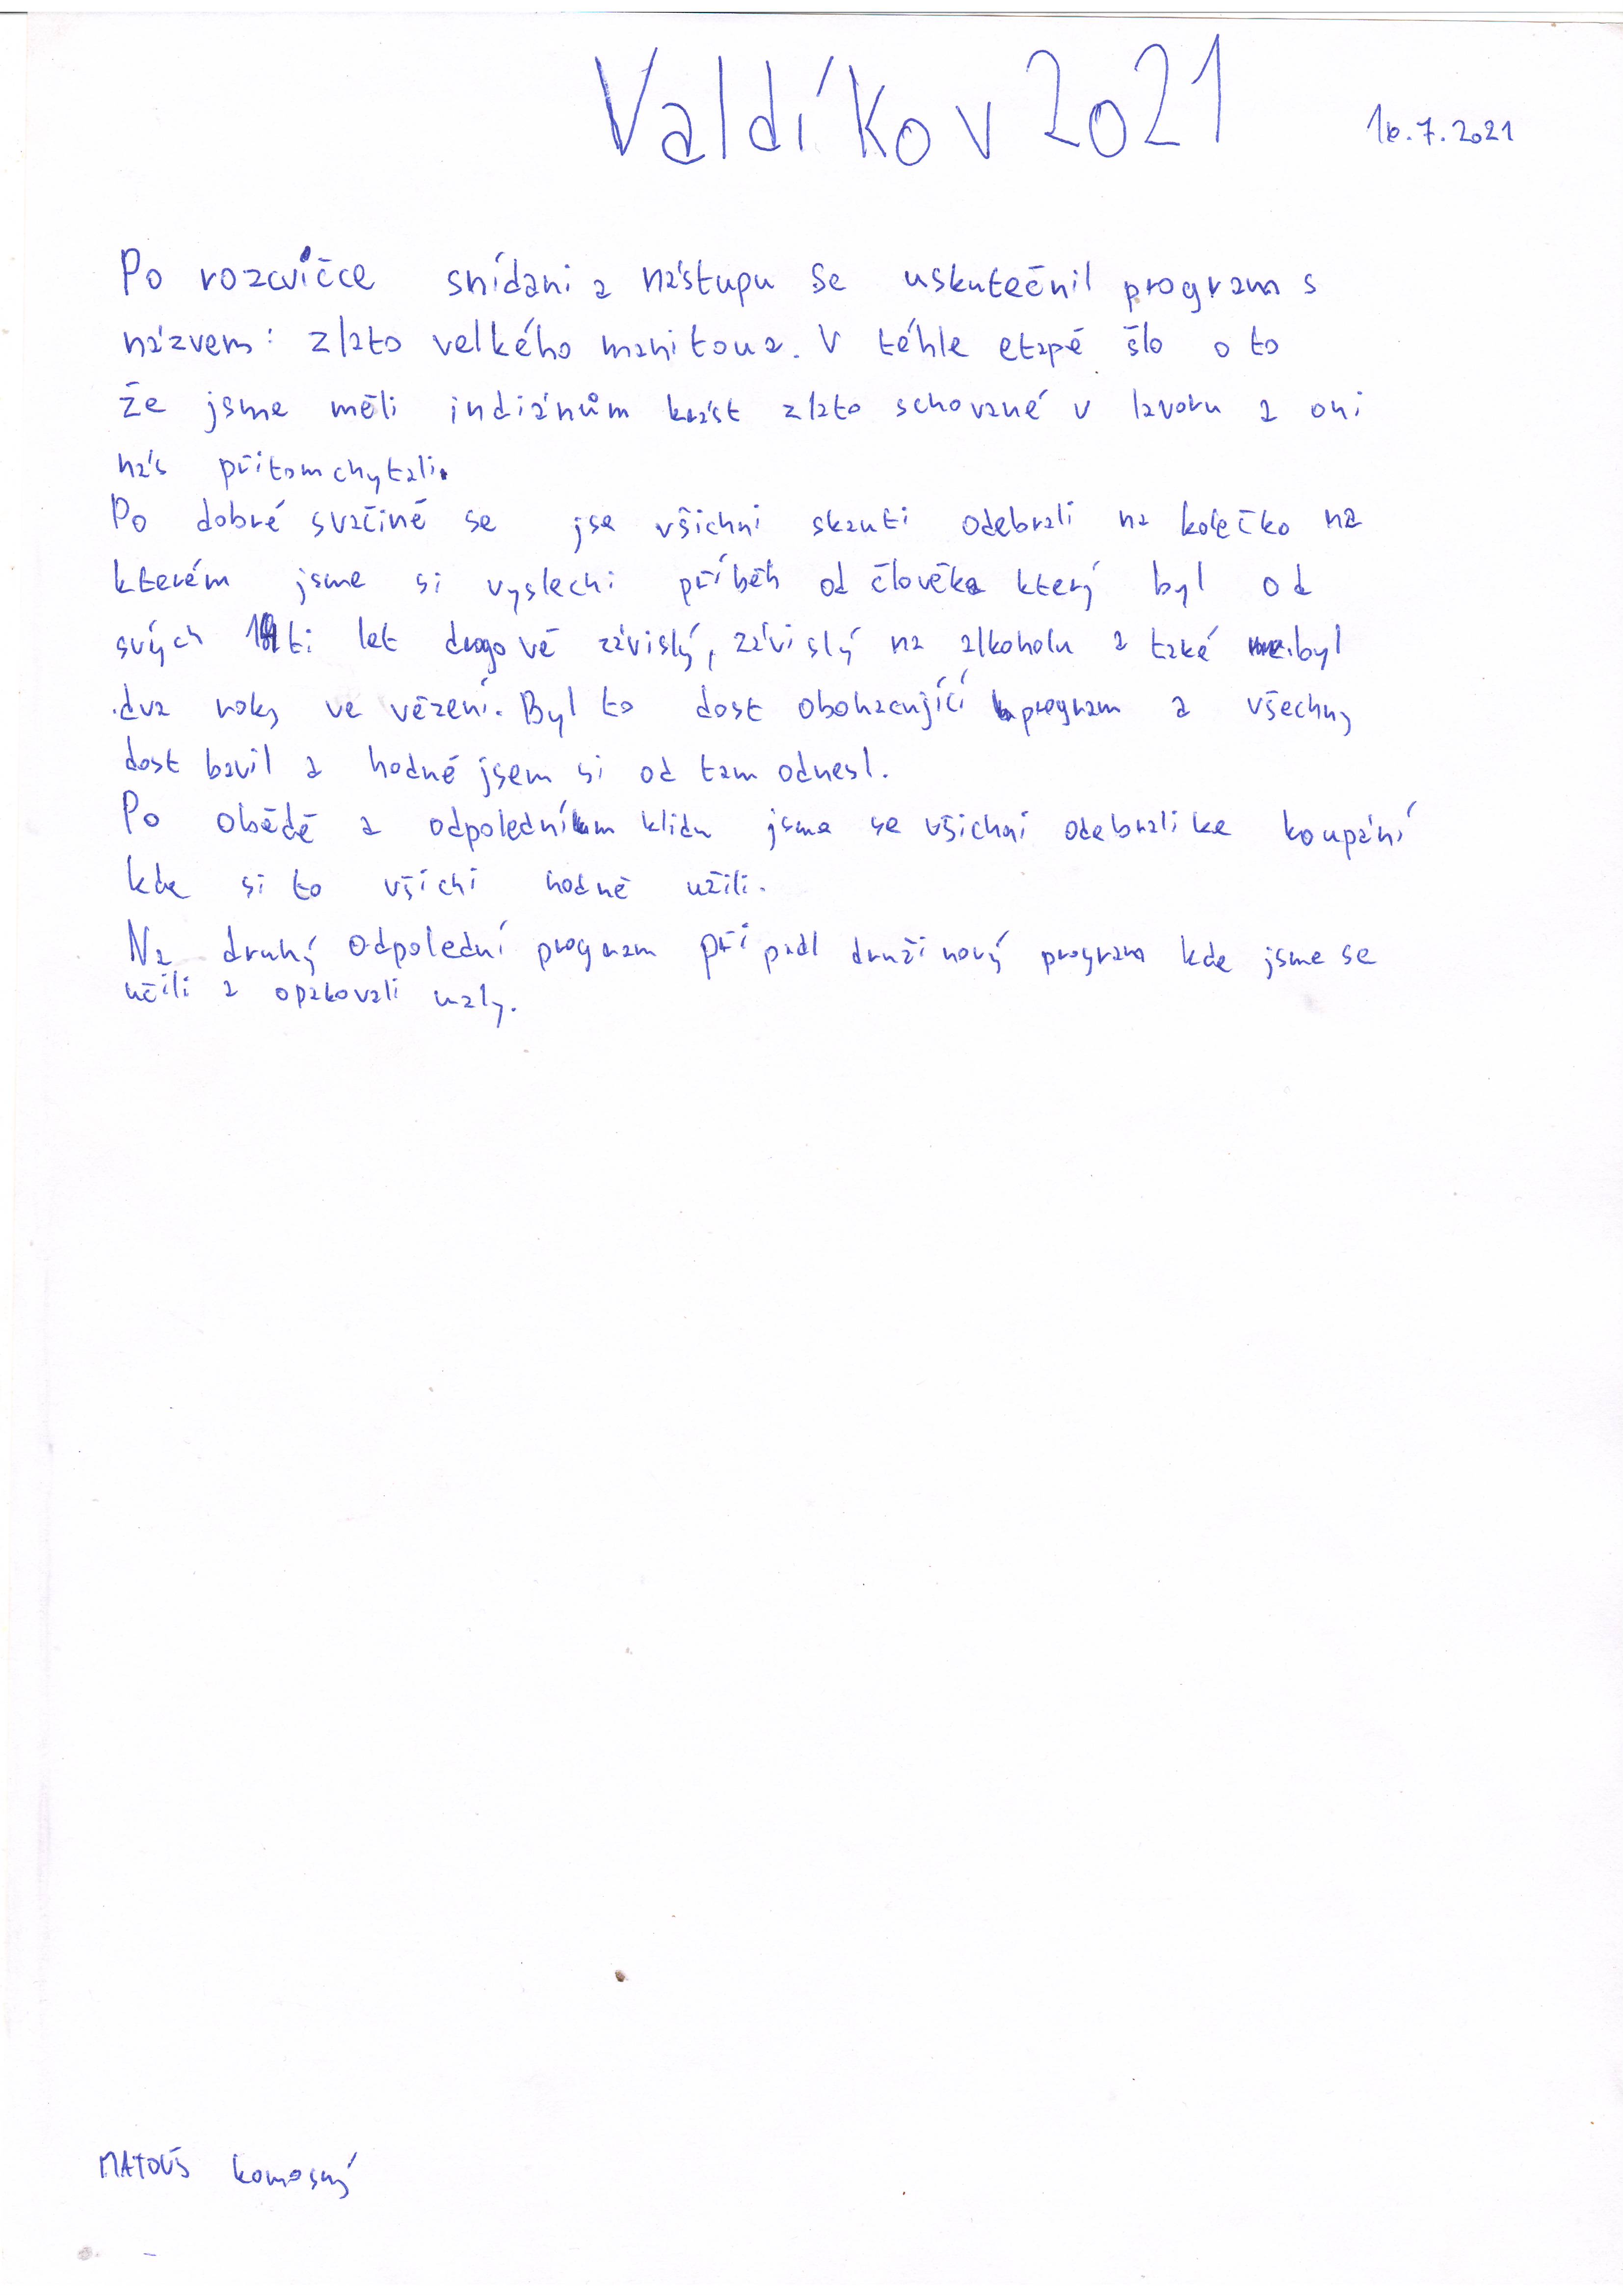 Valdíkov 2021
16.7.2021
Po rozcvičce snídani a nástupu se uskutečnil program s
názvem: zlato velkého manitoua. V téhle etapě šlo o to
že jsme měli indiánům krást zlato schované v lavoru a oni
nás přitom chytali.
Po dobré svačině se jse všichni skauti odebrali na kolečko na
kterém jsme si vyslechi příběh od člověka který byl od
svých ti let drogově závislý, závislý na alkoholu a také byl
dva roky ve vězení. Byl to dost obohacující program a všechny
dost bavil a hodně jsem si od tam odnesl.
Po obědě a odpoledním klidu jsme se všichni odebrali ke koupání
kde si to všichi hodně užili.
Na druhý odpolední program připadl družinový program kde jsme se
učili a opakovali uzly.
MATOUŠ Komosný